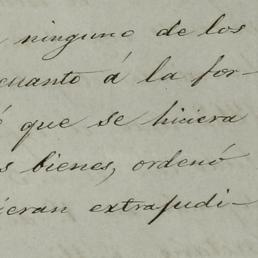 ninguno de los
cuanto á la for-
que se hiciera
bienes, ordenó
extrajudi-